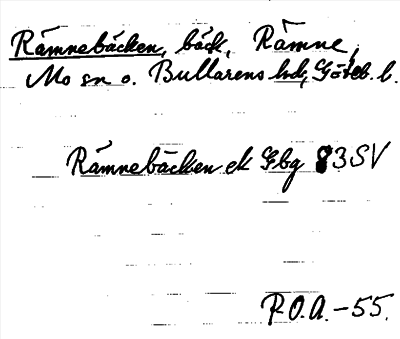 Rämnebäcken, bäck, Rämne,
Mo sn o. Bullarens hd, Göteb. l.
Rämnebäcken ek Gbg 83SV
P.O.A. -55.